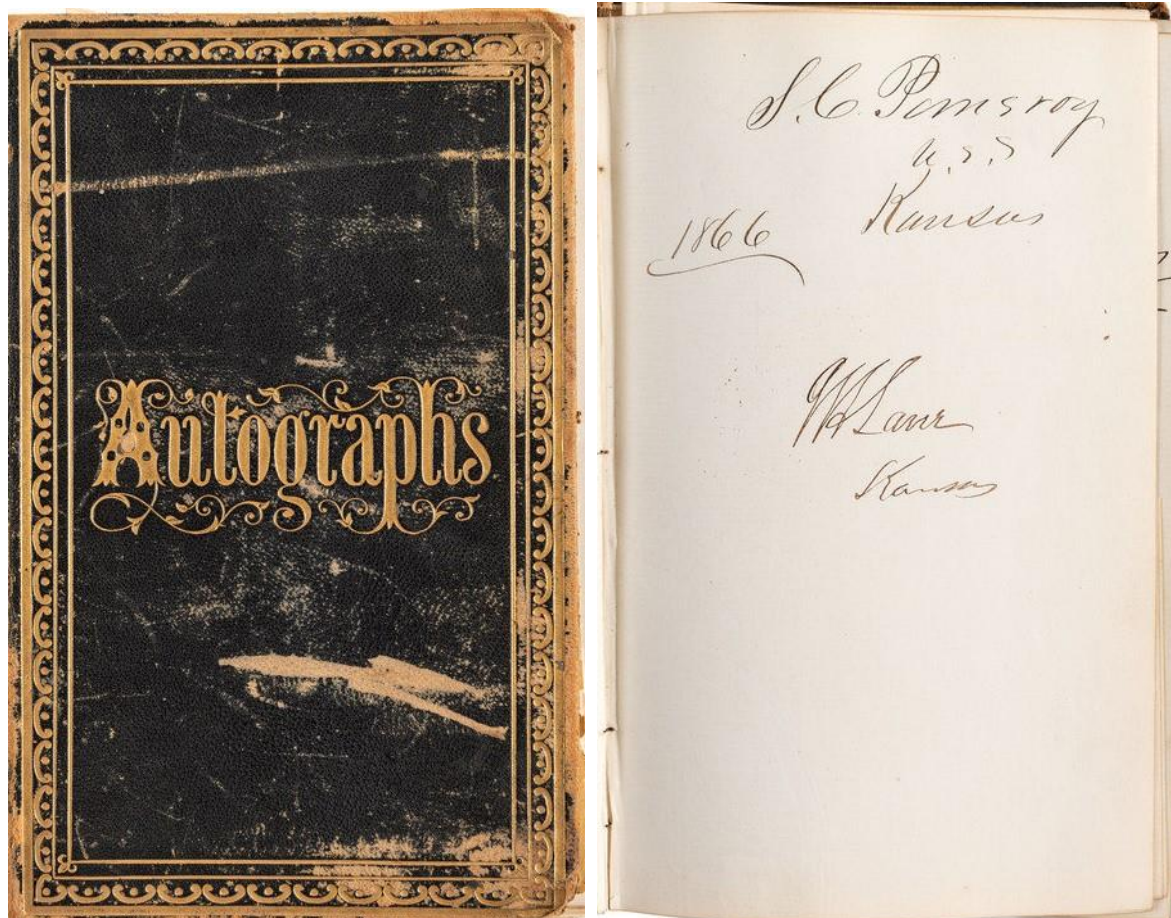 Autographs
S. C. Pomeroy
U.S.S
Kansas
1866
JH Lane
Kansas